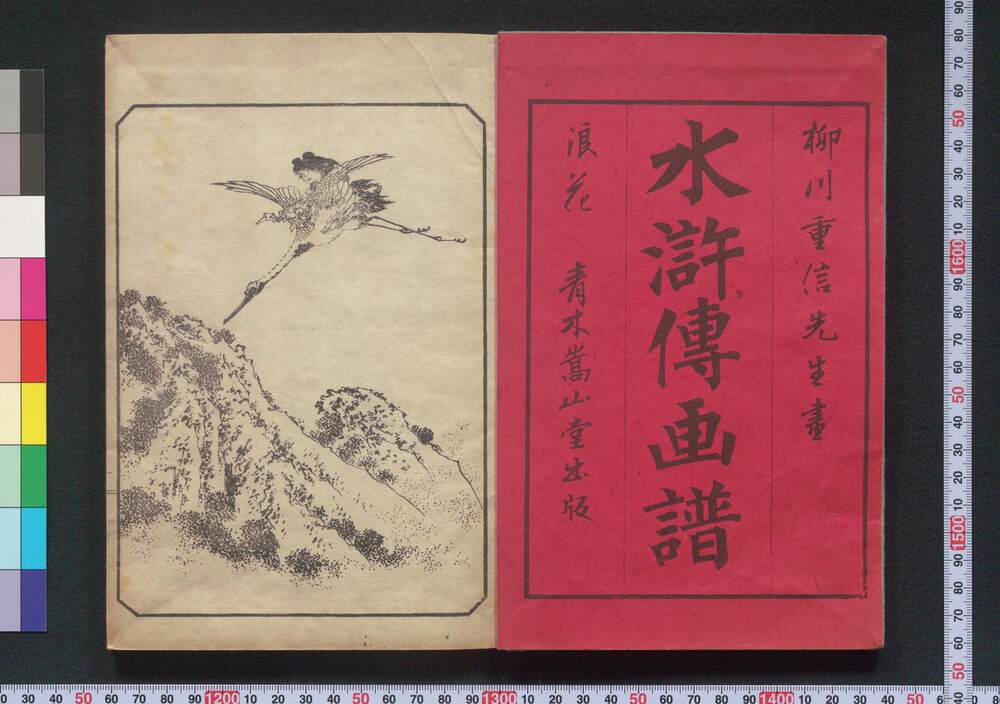 柳川重信先生畫
水滸傳画譜
浪花 青木嵩山堂出版